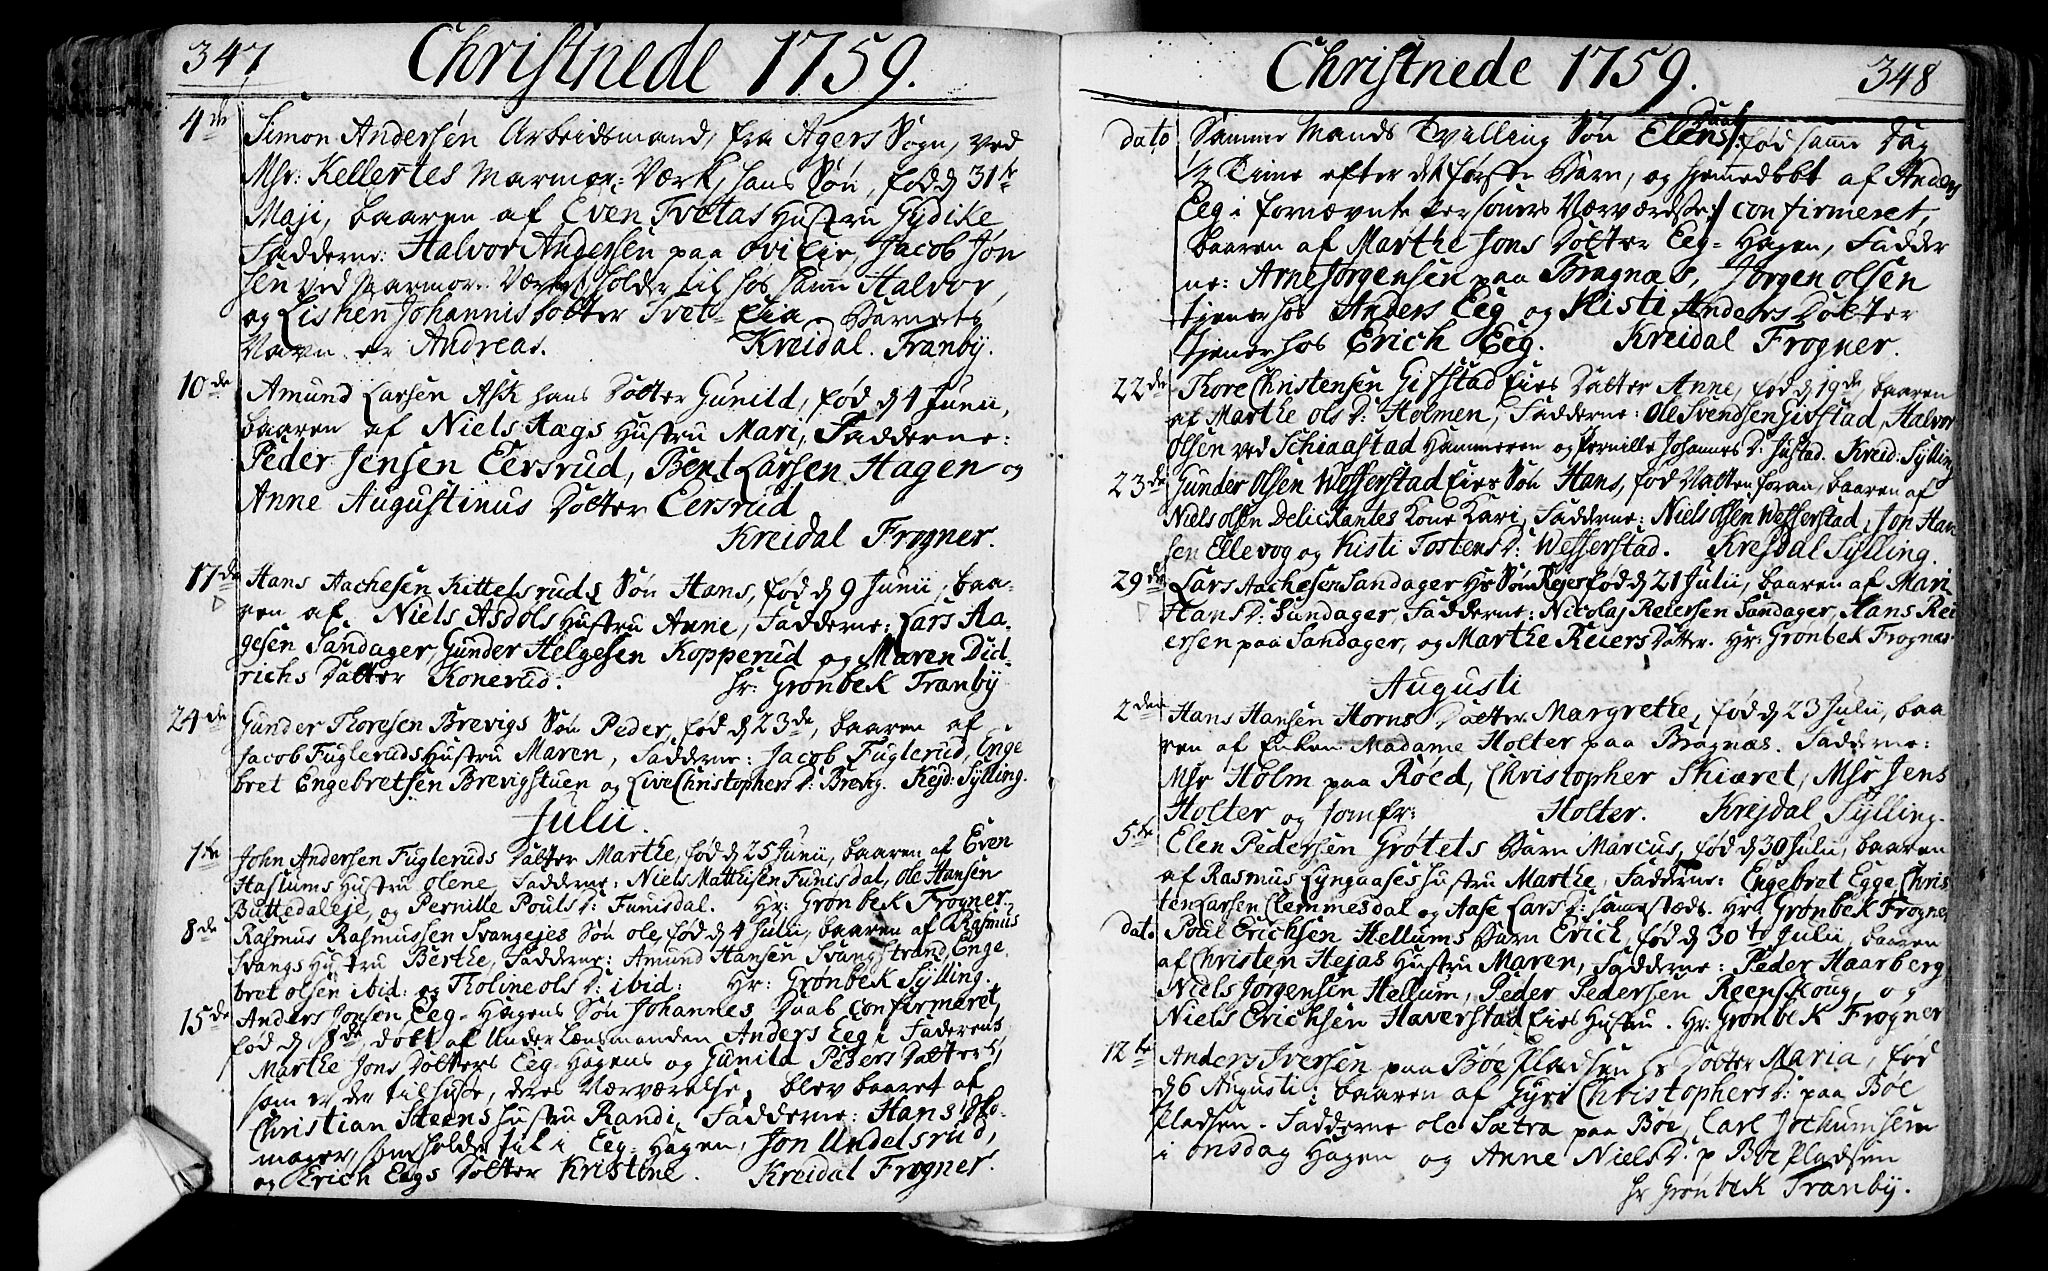 347
Christnede 1759.
4de Simon Andersen Arbeidsmand, fra Agers Sogn, ved
Msr: Kellertes Marmor-Værk, hans Søn, fød d 31te
Maji, baaren af Even Tvetas Hustru Gydike
Fadderne: Halvor Andersen paa Ovi Eie, Jacob Jon
sen ved Marmor-Værket, holder til hos samme Halvor,
og Lisken Johannis Dotter Tvet-Eia Barnets
Navn er Andreas. Kreidal. Tranby.
10de Amund Larsen Ask hans Dotter Gunild, fød d 4 Junii,
baaren af Niels Hægs Hustru Mari, Fadderne:
Peder Jensen Eersrud, Bent Larsen Hagen og
Anne Augustinus Dotter Eersrud
Kreidal Frogner.
17de Hans Aachesen Kittelsruds Søn Hans, fød d 9 Junii, baa-
ren af Niels Asdøls Hustru Anne, Fadderne: Lars Aa-
gesen Sandager, Gunder Helgesen Kopperud og Maren Did-
richs Datter Konerud. Hr: Grønbek Tranby
24de Gunder Thoresen Brevigs Søn Peder, fød d 23de, baaren af
Jacob Fugleruds Hustru Maren, Fadderne: Jacob Fuglerud, Enge
bret Engebretsen Brevigstuen og Live Christophers D: Brevig. Krejd: Sylling.
Julii.
1te John Andersen Fugleruds Datter Marthe, fød d 25 Junii, baaren af Even
Haslums Hustru Olene, Fadderne: Niels Mathisen Funisdal, Ole Hansen
Buttedaleje, og Pernille Pouls D: Funisdal. Hr: Grønbek Frogner.
8de Rasmus Rasmussen Svangejes Søn Ole, fød d 4 Julii, baaren af Rasmus
Svangs Hustru Berthe, Fadderne: Amund Hansen Svangstrand, Enge-
bret Olsen ibid: og Tholine Ols D: ibid: Hr: Grønbek Sylling.
15de Anders Jonsen Eeg-Hagens Søn Johannes Daab Confirmeret,
fød d 8de, døbt af Underlænsmanden Anders Eeg i Faderens
Marthe Jons Dotters Eeg-Hagens og Gunild Peders Datters,
som er der til Huse, deres Nærværelse, blev baaret af
Christian Steens Hustru Randi, Fadderne: Hans Tho-
maser, som holder til i Eeg-Hagen, Jon Undelsrud,
og Erich Eegs Dotter Kristine. Kreidal Frogner.
348
Christnede 1759.
dato Samme Mands Tvilling Søn Elens Daab fød samme Dag
1/2 Time efter det første Barn, og hjemedøbt af Anders
Eeg i fornævnte Personers Nærværelse confirmeret,
baaren af Marthe Jons Dotter Eeg-Hagen, Fadder
ne: Arne Jørgensen paa Bragnæs, Jørgen Olsen
tjener hos Anders Eeg og Kisti Anders Dotter
tjener hos Erich Eeg. Kreidal Frogner.
22de Thore Christensen Gifstad Eies Datter Anne, fød d 19de, baaren
af Marthe Ols D: Holmen, Fadderne: Ole Svendsen Gifstad, Halvor
Olsen ved Schiaastad Hammeren og Pernille Johannes D: Justad. Kreid: Sylling
23de Gunder Olsen Wefferstad Eies Søn Hans, fød Natten foran, baaren af
Niels Olsen Delickantes Kone Kari, Fadderne: Niels Olsen Wefferstad, Jon Han
sen Ellevog og Kisti Tostens D: Wefferstad. Krejdal Sylling.
29de Lars Aachesen Sandager Hs Søn Rejer fød d 21 Julii, baaren af Mari
Hans D: Sandager, Fadderne: Nicolaj Reiersen Sandager, Hans Rei
ersen paa Sandager, og Marthe Reiers Datter. Hr: Grønbek Frogner
Augusti
2den Hans Hansen Horns Datter Margrethe, fød d 23 Julii, baa
ren af Enken Madame Holter paa Bragnæs. Fadderne:
Msr Holm paa Røed, Christopher Skiæret, Msr Jens
Holter og Jomfr: Holter. Krejdal Sylling.
5te Elen Pedersen Grøtets Barn Marcus, fød d 30 Julii, baaren
af Rasmus Lyngaases Hustru Marthe, Fadderne: Engebret Egge, Chris
ten Larsen Clemmesdal og Aase Lars D: sammestæds. Hr: Grønbek Frogner
dato Poul Erichsen Hellums Barn Erich, fød d 30te Julii, baaren
af Christen Hejas Hustru Maren, Fadderne: Peder Haarberg,
Niels Jørgensen Hellum, Peder Pedersen Reenskoug, og
Niels Erichsen Haverstad Eies Hustru. Hr: Grønbek Frogner
12te Anders Iversen paa Bøe Pladsen Hs Dotter Maria, fød
d 6 Augusti; baaren af Gyri Christophers D: paa Bøe
Pladsen. Fadderne Ole Sætra paa Bøe, Carl Jochumsen
i Onsdag Hagen og Anne Niels D: p Bøe Pladsen
Hr Grønbek Tranby.